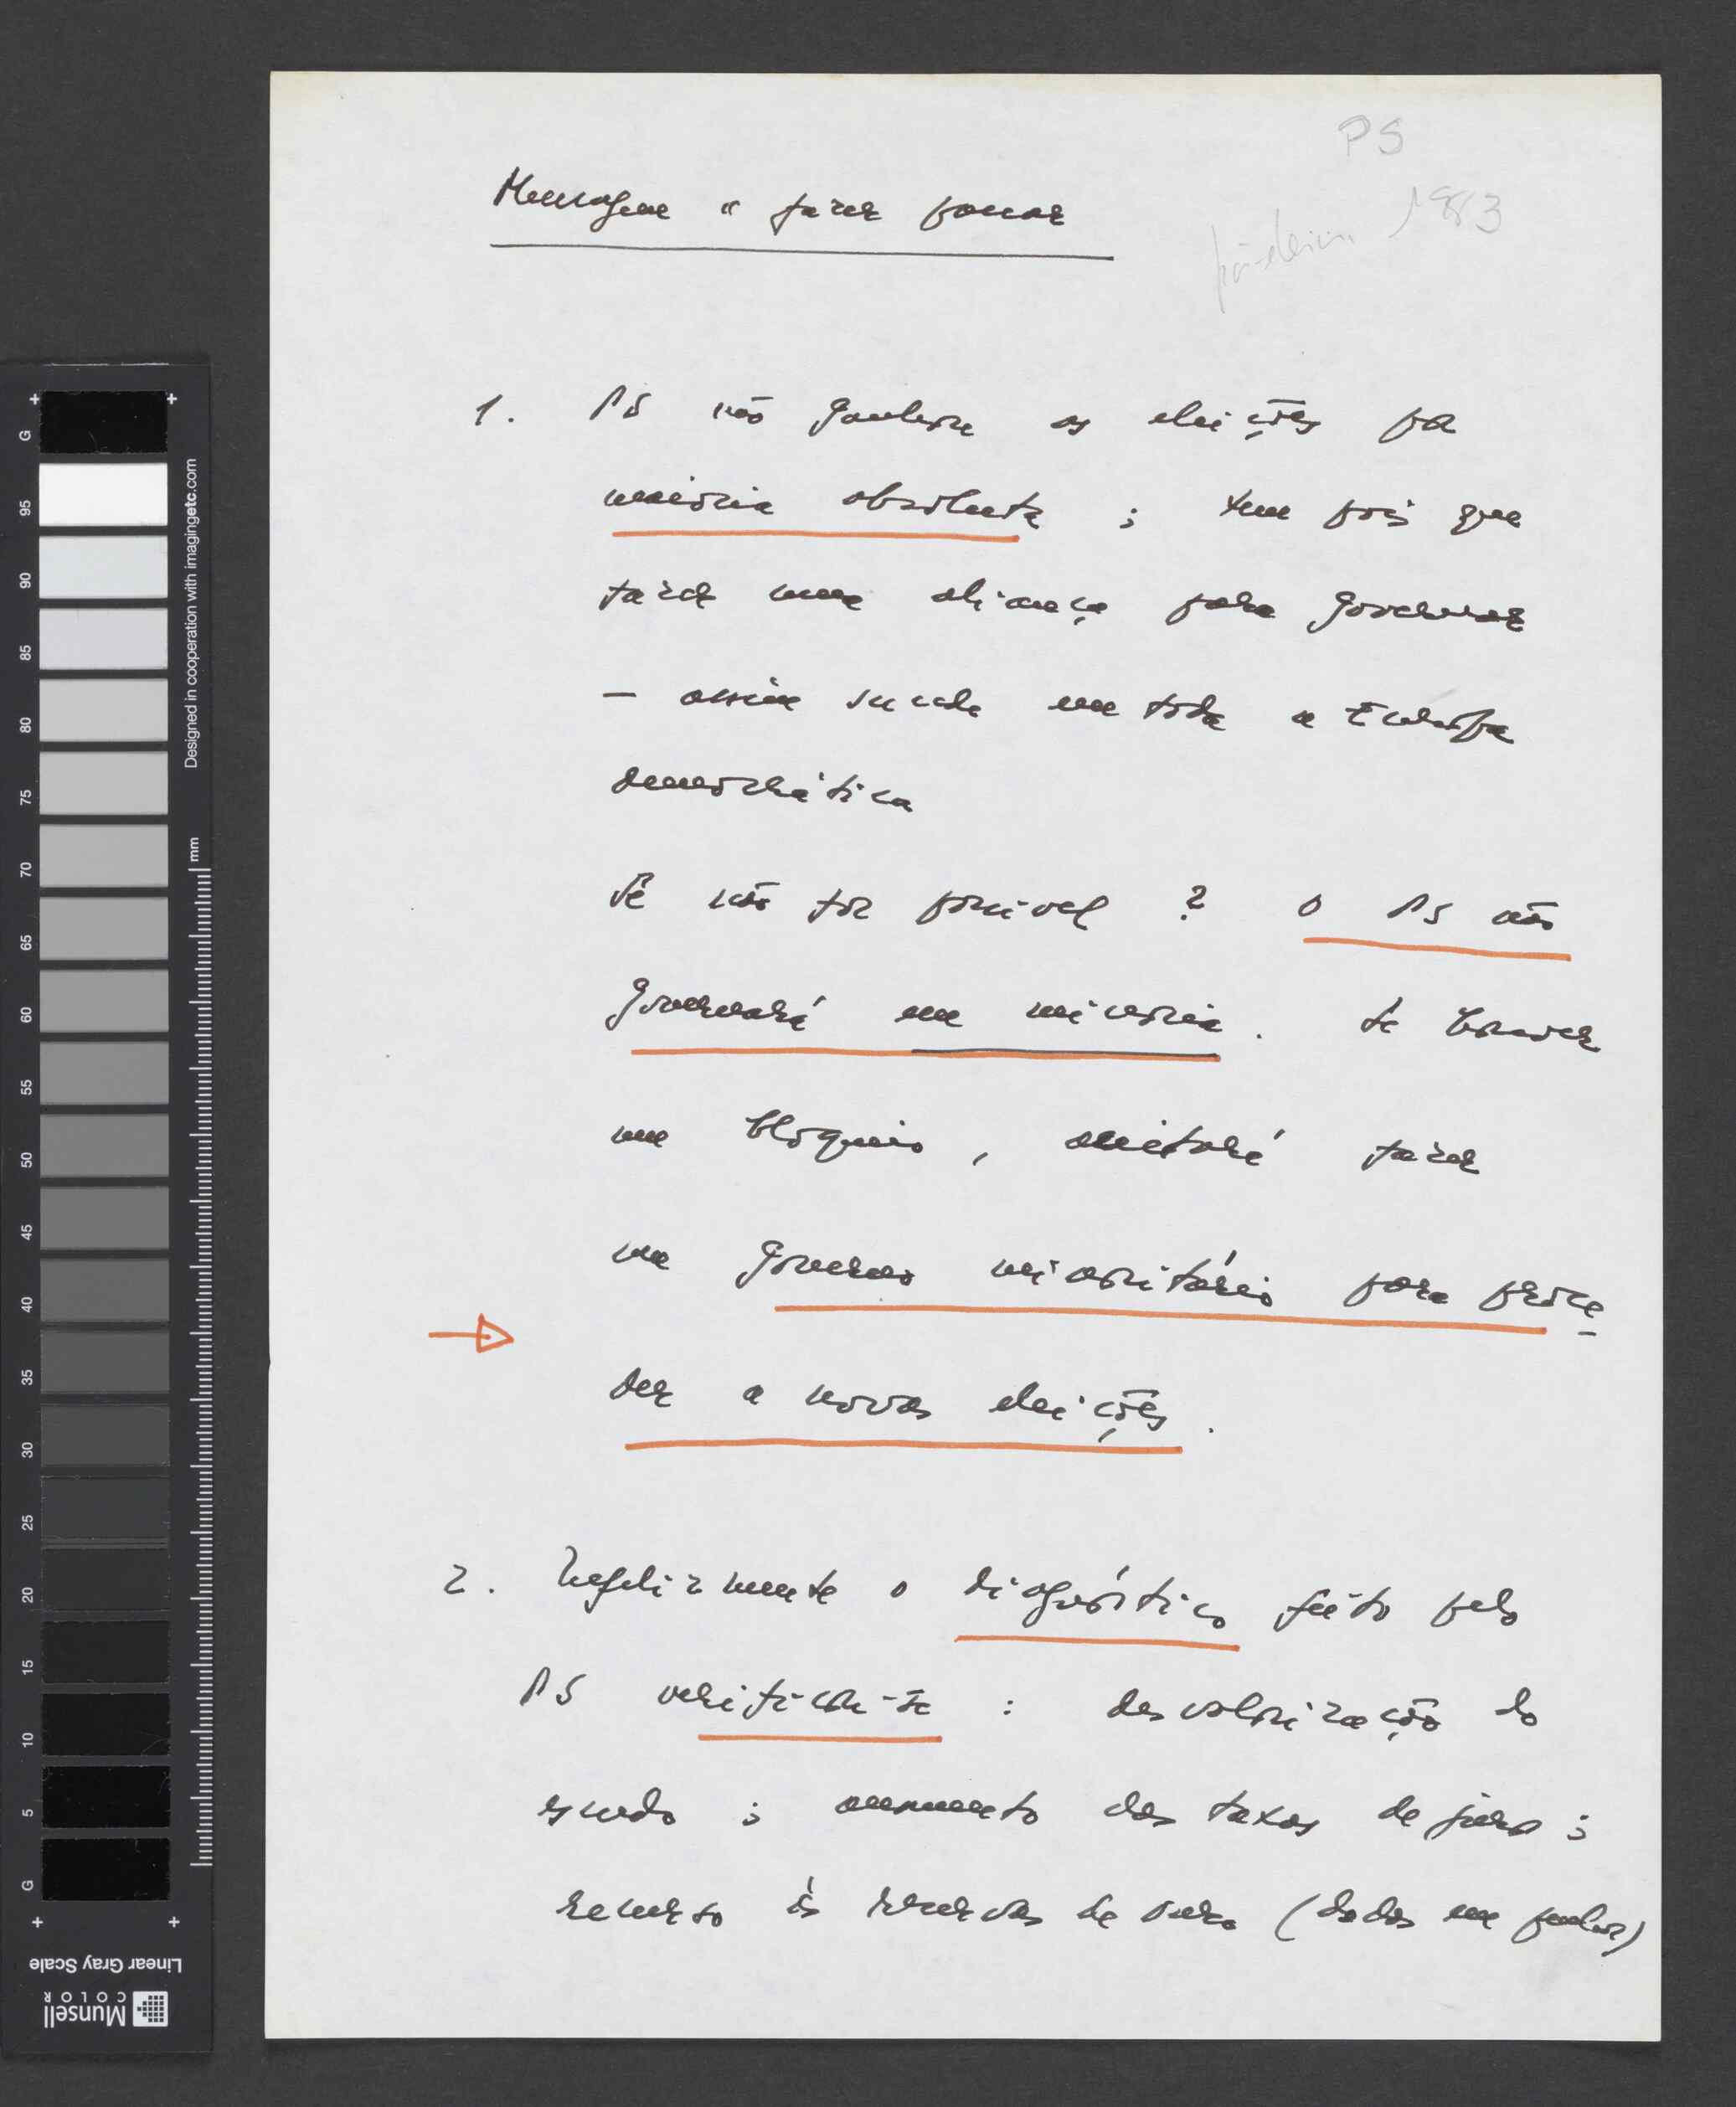 PS
1983
Mensagem a fazer passar
1. PS não ganhou as eleições por
maioria absoluta ; tem pois que
fazer uma aliança para governar
– assim sucede em toda a Europa
democrática
Se não for possível ? O PS não
governará em minoria. Se houver
um bloqueio, aceitará fazer
um governo minoritário para proce
der a novas eleições.
2. Infelizmente o diagnóstico feito pelo
PS verificou-se : desvalorização do
escudo ; aumento das taxas de juro ;
recurso às reservas de ouro (dadas em penhor)
G
95
90
85
80
75
70
65
60
55
50
45
40
35
30
25
20
15
10
5
G
Designed in cooperation with imagingetc.com
mm
Linear Gray Scale
Munsell
COLOR